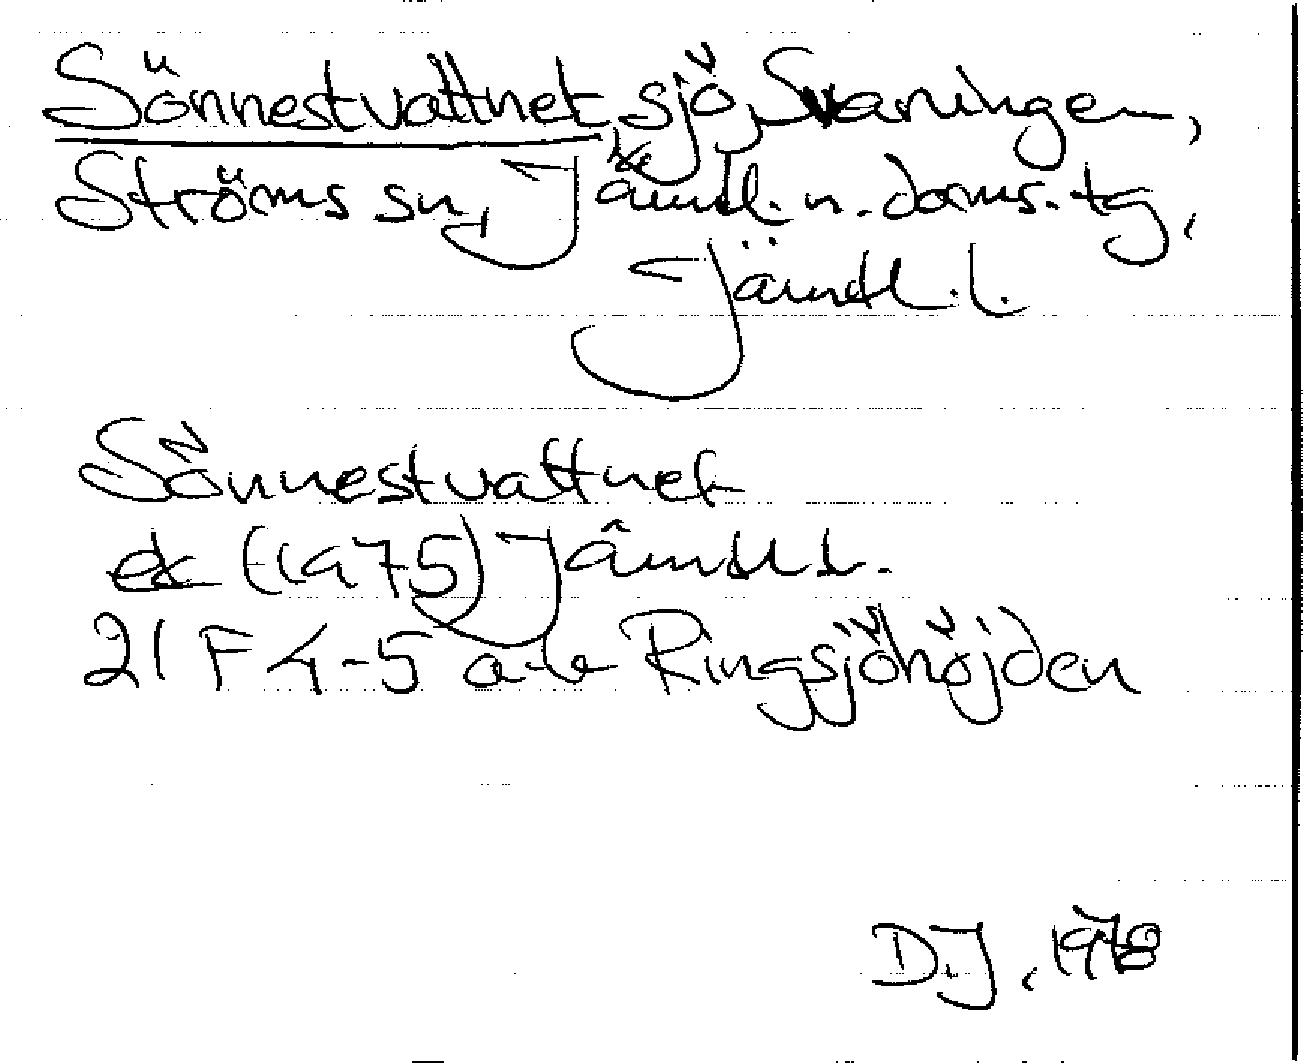 Sönnestvattnet, sjö, Svaningen,
Ströms sn, Jämtl. n. doms. tg,
Jämtl. l.
Sönnestvattnet
ek (1975) Jämtl l.
21 F 4-5 a-b Ringsjöhöjden
D.J, 1978